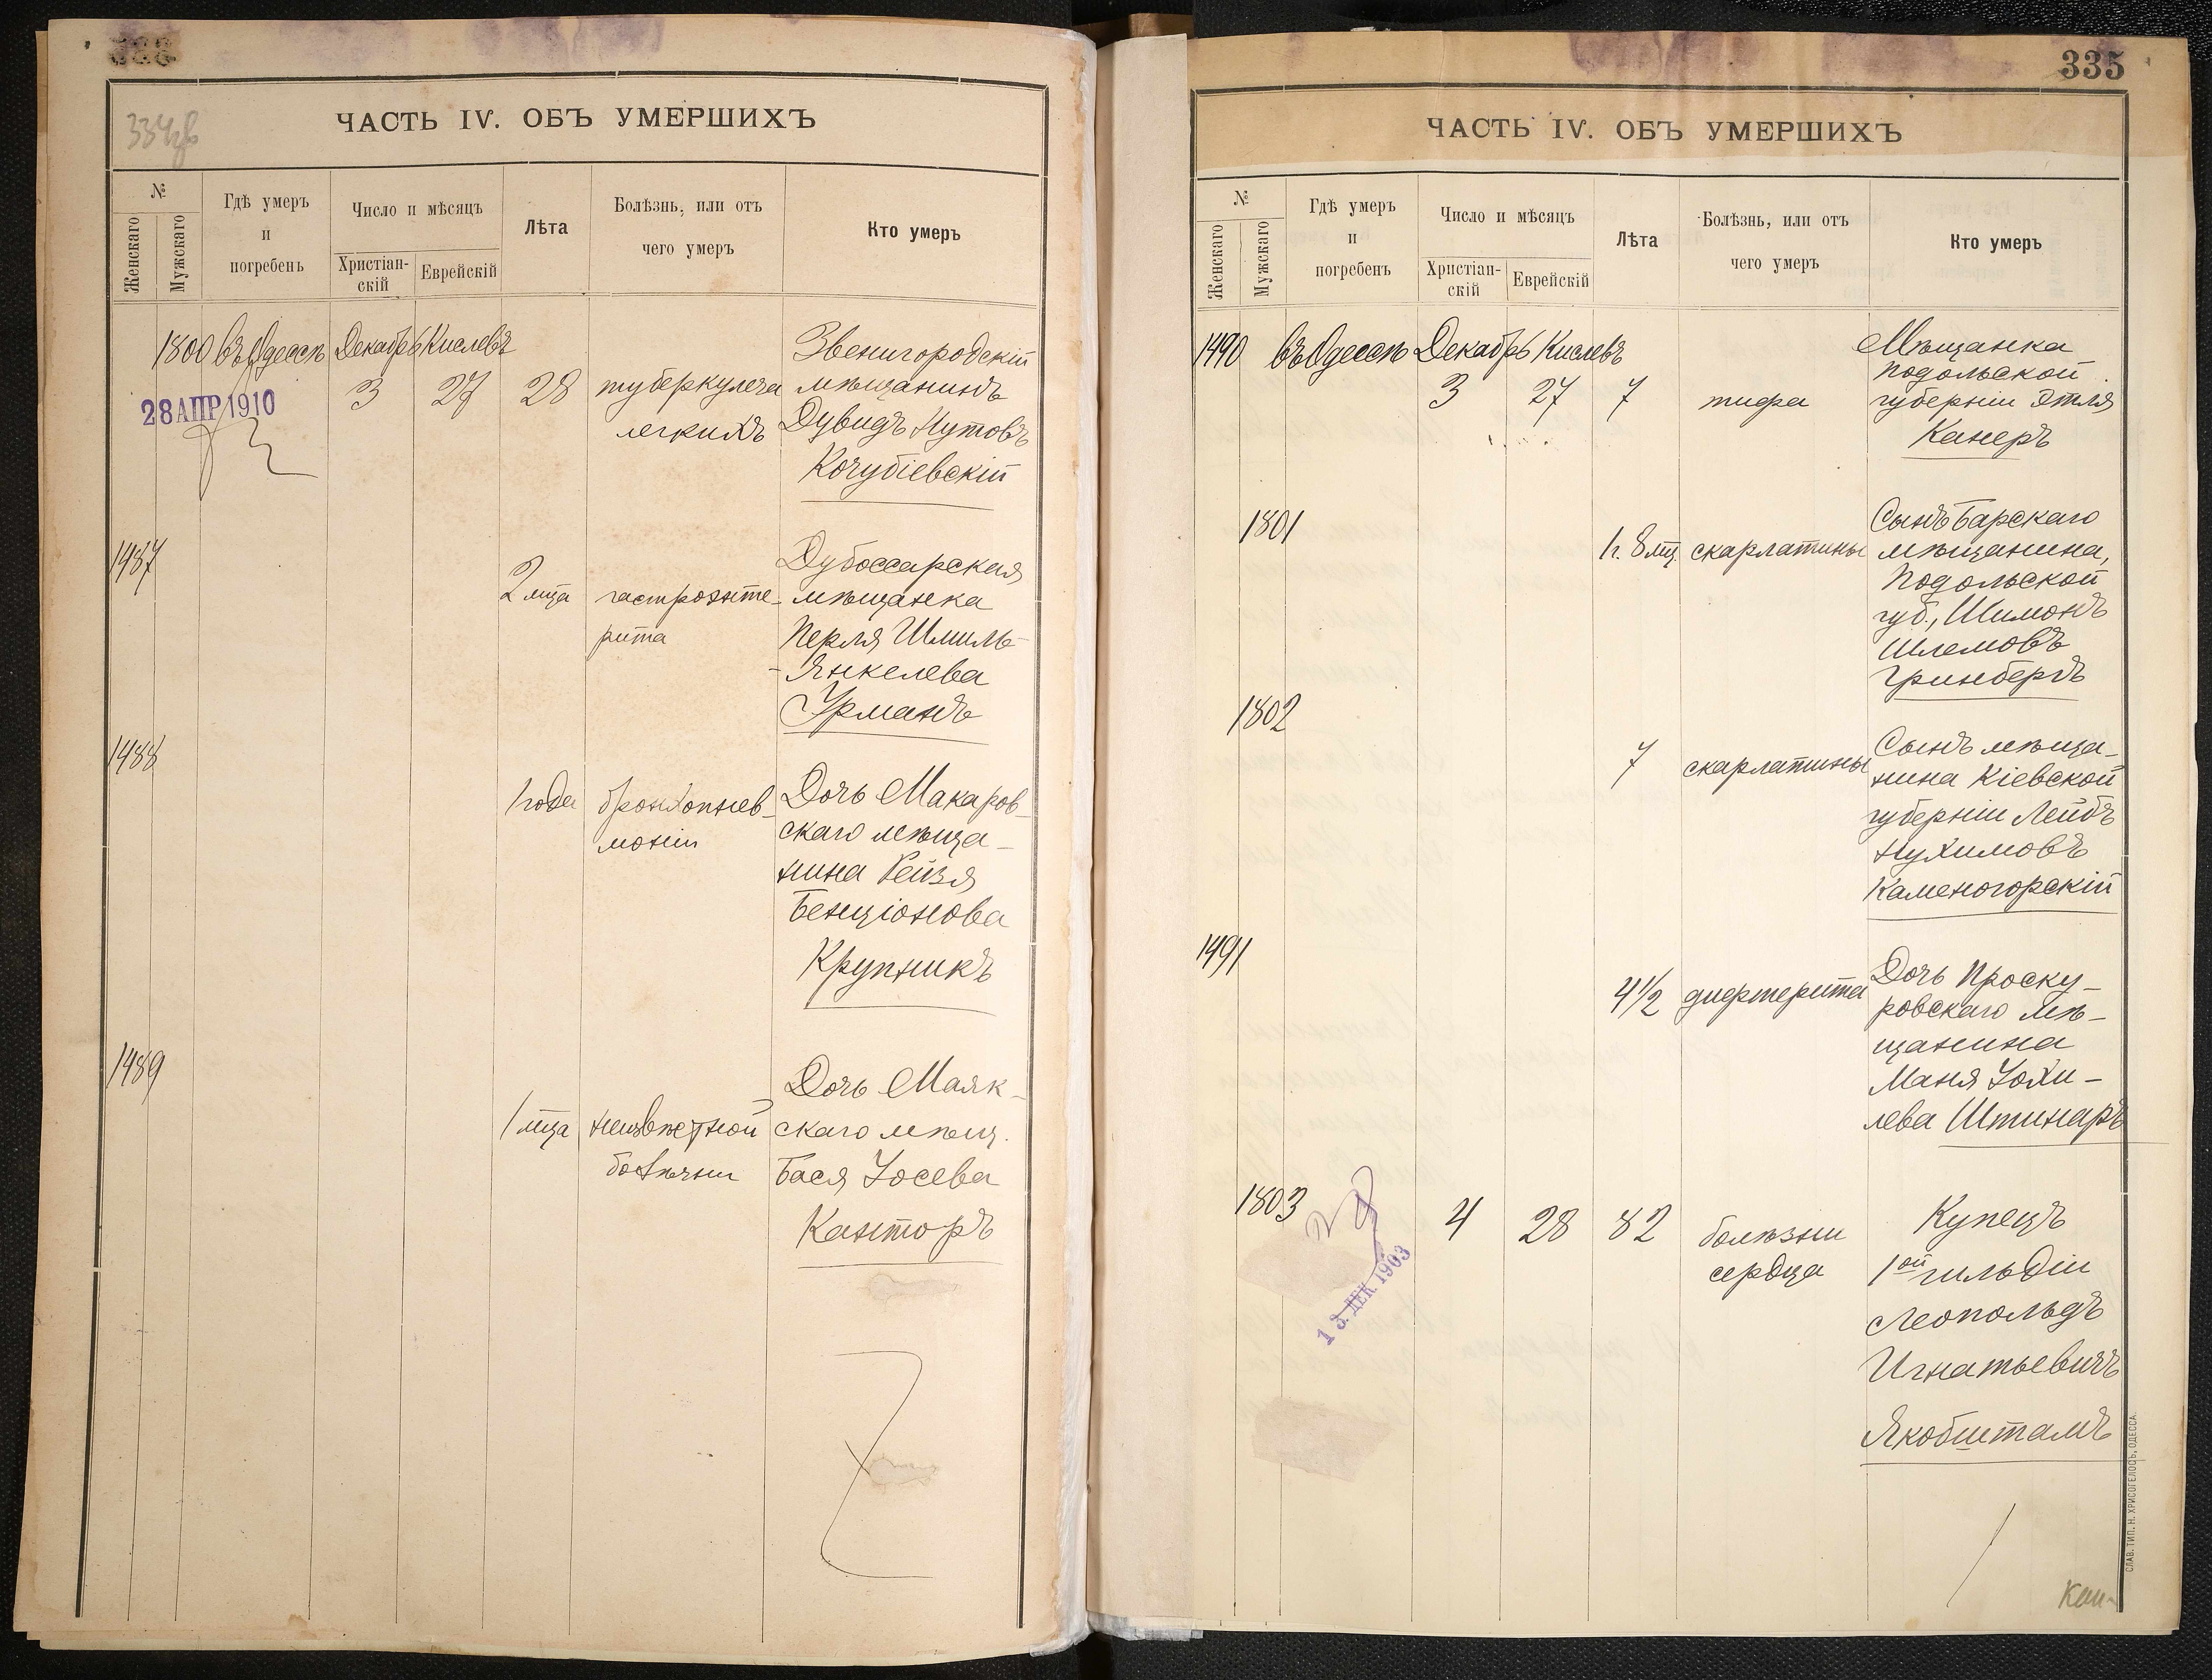 334 об
ЧАСТЬ IV. ОБЪ УМЕРШИХЪ
№
Женскаго
Мужскаго
Гдѣ умеръ
и
погребенъ
Число и мѣсяцъ
Христіан-
скій
Еврейскій
Лѣта
Болѣзнь, или отъ
чего умеръ
Кто умеръ
1800 въ Одессѣ Декабрь Кислевъ Звенигородскій
3 27 28 туберкулеза мѣщанинъ
28 АПР 1910
легкихъ Дувидъ Нутовъ
Кочубіевскій
1487 Дубоссарская
2 мца гастроэнте- мѣщанка
рита Перля Шмиль-
-Янкелева
Урманъ
1488
1 года бронхопнев- Дочь Макаров-
моніи скаго мѣща-
нина Рейзя
Бенціонова
Крупникъ
1489 Дочь Маяк-
1 мца неизвѣстной скаго мѣщ.
болѣзни Бася Іосева
Канторъ
335
ЧАСТЬ IV. ОБЪ УМЕРШИХЪ
№
Женскаго
Мужскаго
Гдѣ умеръ
и
погребенъ
Число и мѣсяцъ
Христіан-
скій
Еврейскій
Лѣта
Болѣзнь, или отъ
чего умеръ
Кто умеръ
1490 въ Одессѣ Декабрь Кислевъ Мѣщанка
Подольской
3 27 7 тифа губерніи Этля
Канеръ
1801 Сынъ Барскаго
1 г. 8 мц. скарлатины мѣщанина,
Подольской
губ., Шимонъ
Шлемовъ
Гринбергъ
1802
7 скарлатины Сынъ мѣща-
нина Кіевской
губерніи Лейбъ
Нухимовъ
Каменогорскій
1491
4½ дифтерита Дочь Проску-
ровскаго мѣ-
щанина
Маня Іохи-
лева Штинаръ
1803 4 28 82 болѣзни Купецъ
сердца 1ой гильдіи
13. ДЕК. 1903
Леопольдъ
Игнатьевичъ
Якобштамъ
СЛАВ. ТИП. Н. ХРИСОГЕЛОСЪ, ОДЕССА.